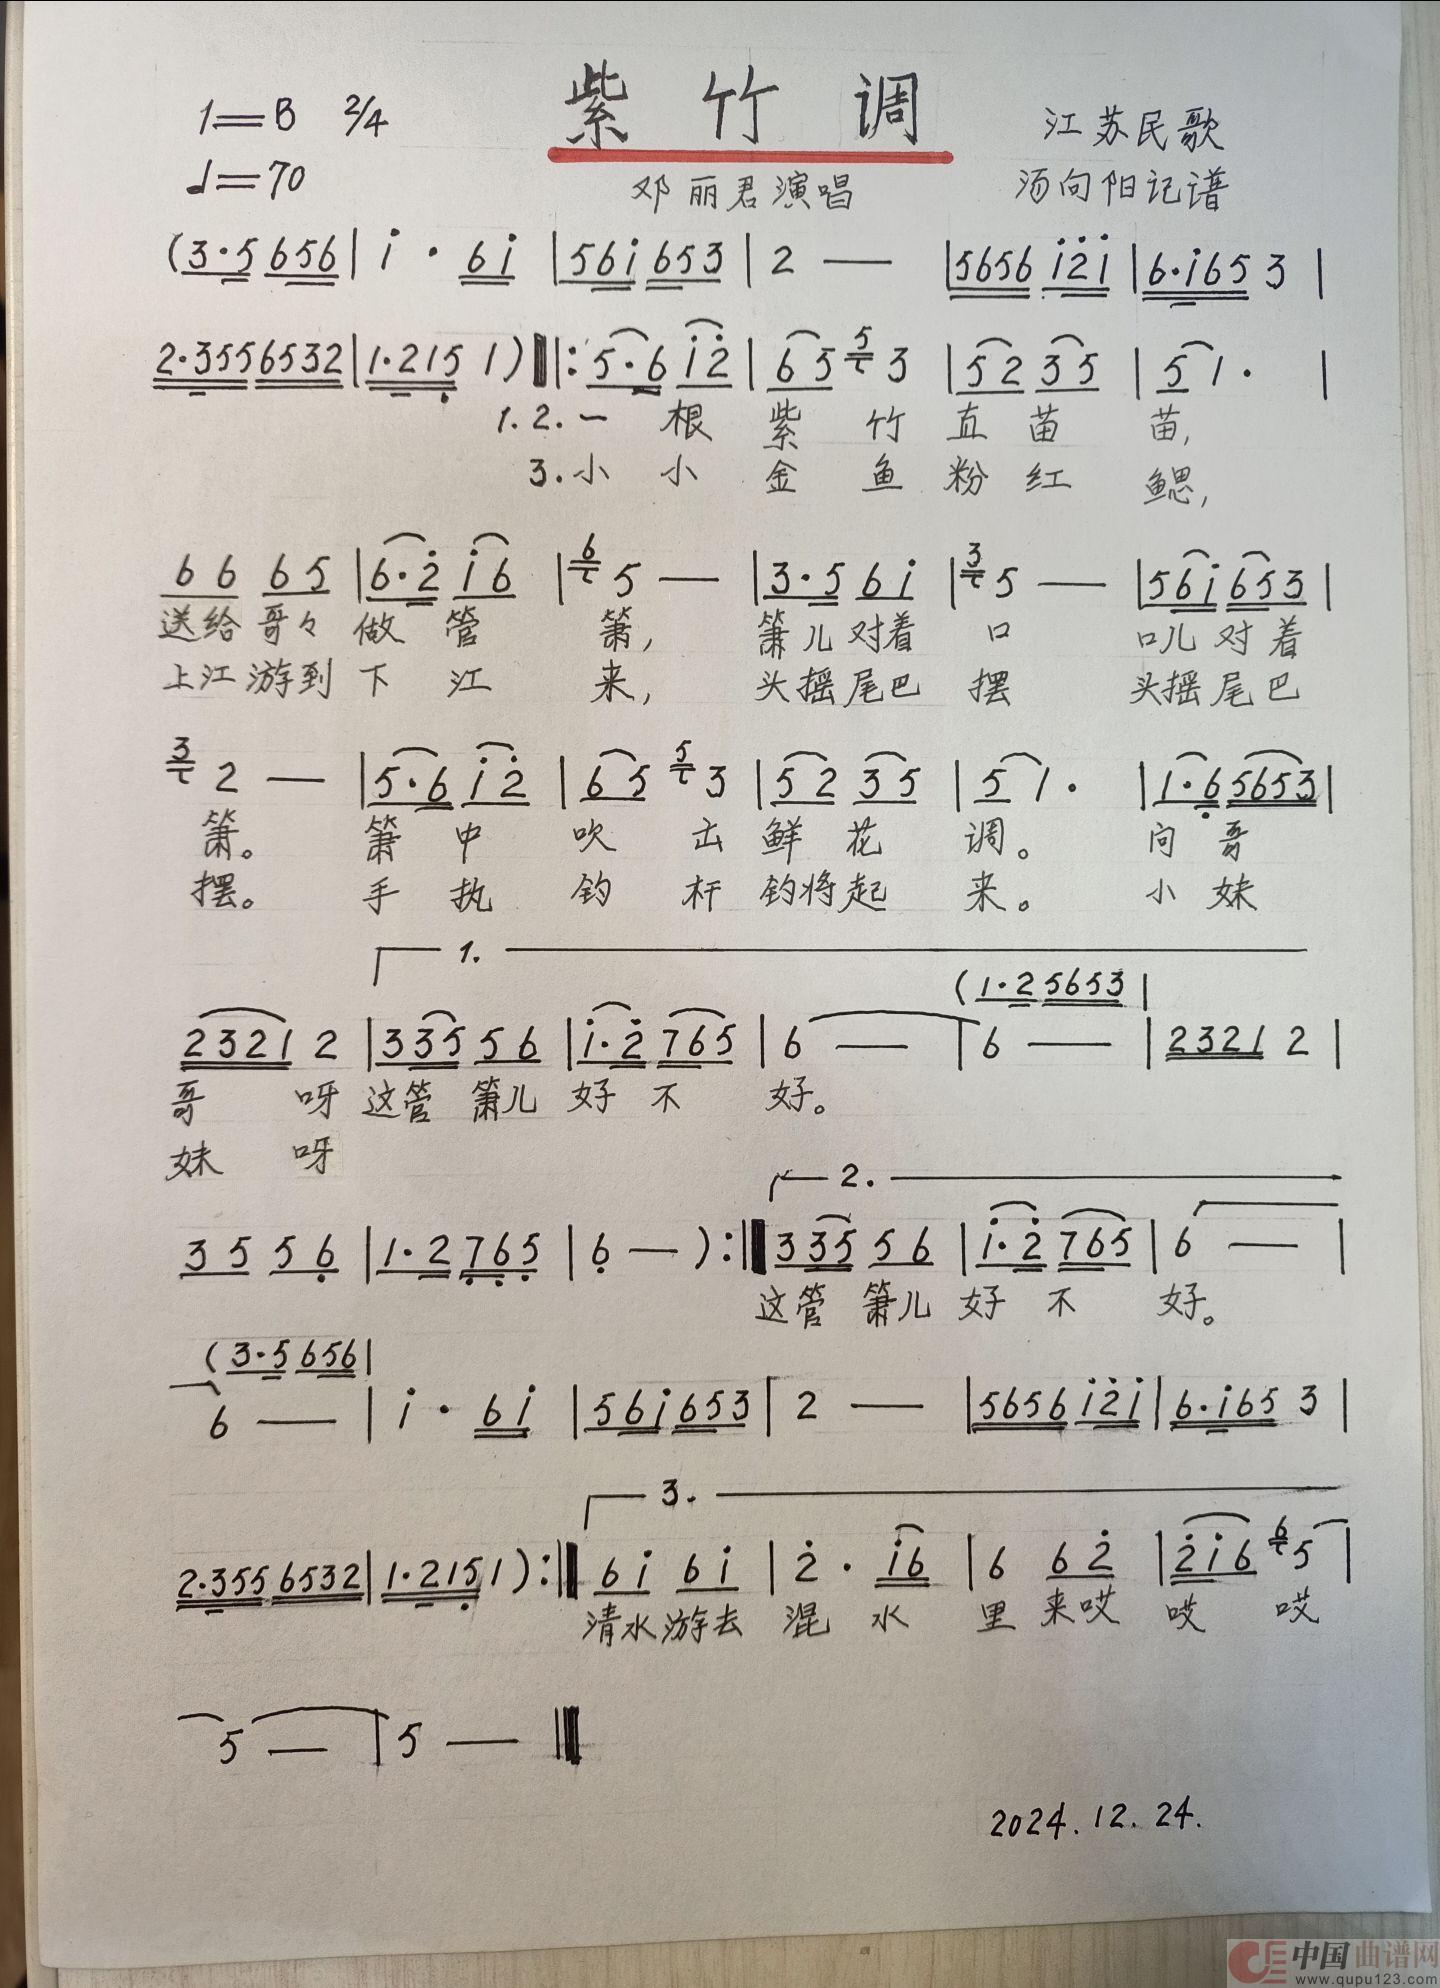 1=B 2/4 紫竹调 江苏民歌
♩=70 邓丽君演唱 汤向阳记谱
(3·5 656 | i · 6i | 56i 653 | 2 — | 5656 i2i | 6·i65 3 |
2·355 6532 | 1·215 1) ‖: 5·6 i2 | 65 5 3 | 52 35 | 5 1· |
1.2.一 根 紫 竹 直 苗 苗,
3.小 小 金 鱼 粉 红 鳃,
66 65 | 6·2 i6 | 6 5 — | 3·5 6i | 3 5 — | 56i 653 |
送给哥々做管 箫, 箫儿对着 口 口儿对着
上江游到下江 来, 头摇尾巴 摆 头摇尾巴
3 2 — | 5·6 i2 | 65 5 3 | 52 35 | 5 1· | 1·6 5653 |
箫。 箫 中 吹 出 鲜 花 调。 问 哥
摆。 手 执 钓 杆 钓将起 来。 小 妹
1.
(1·2 5653 |
2321 2 | 335 56 | i·2 765 | 6 — | 6 — | 2321 2 |
哥 呀 这管 箫儿 好 不 好。
妹 呀
2.
35 56 | 1·2 765 | 6 — ) :‖ 335 56 | i·2 765 | 6 — |
这管 箫儿 好 不 好。
(3·5 656 |
6 — | i · 6i | 56i 653 | 2 — | 5656 i2i | 6·i65 3 |
3.
2·355 6532 | 1·215 1) :‖ 6i 6i | 2 · i6 | 6 62 | 2i6 6 5 |
清水游去 混 水 里 来哎 哎 哎
5 — | 5 — ‖
2024.12.24.
中国曲谱网
www.qupu123.com